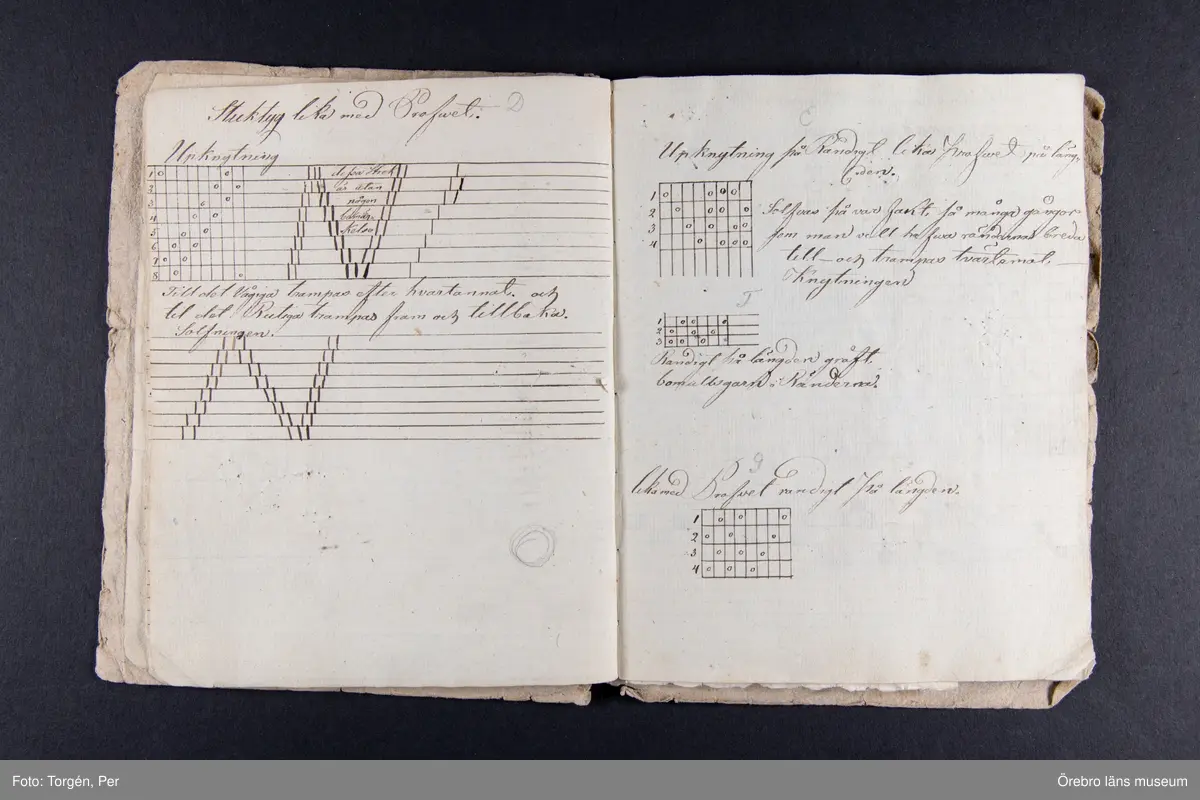 Stuktyg lika med Profwet. D
Upknytning
1
2
3
4
5
6
7
8
dessa Strek
är utan
någon
Till det Vågiga trampas efter hvartannat. och
til det Rutiga trampas fram och tillbaka.
Solfningen.
C
Upknytning på Randigt lika Profwet på läng-
den.
1
2
3
4
Solfvas på var Jakt, så många gånger
som man vill hafwa ränderna breda
till – och trampas tvärtemot
Knytningen
F
1
2
3
Randigt på längden gröft
bomullsgarn i Ränderna.
g
lika med Profwet randigt på längden.
1
2
3
4
Foto: Torgén, Per
Örebro läns museum